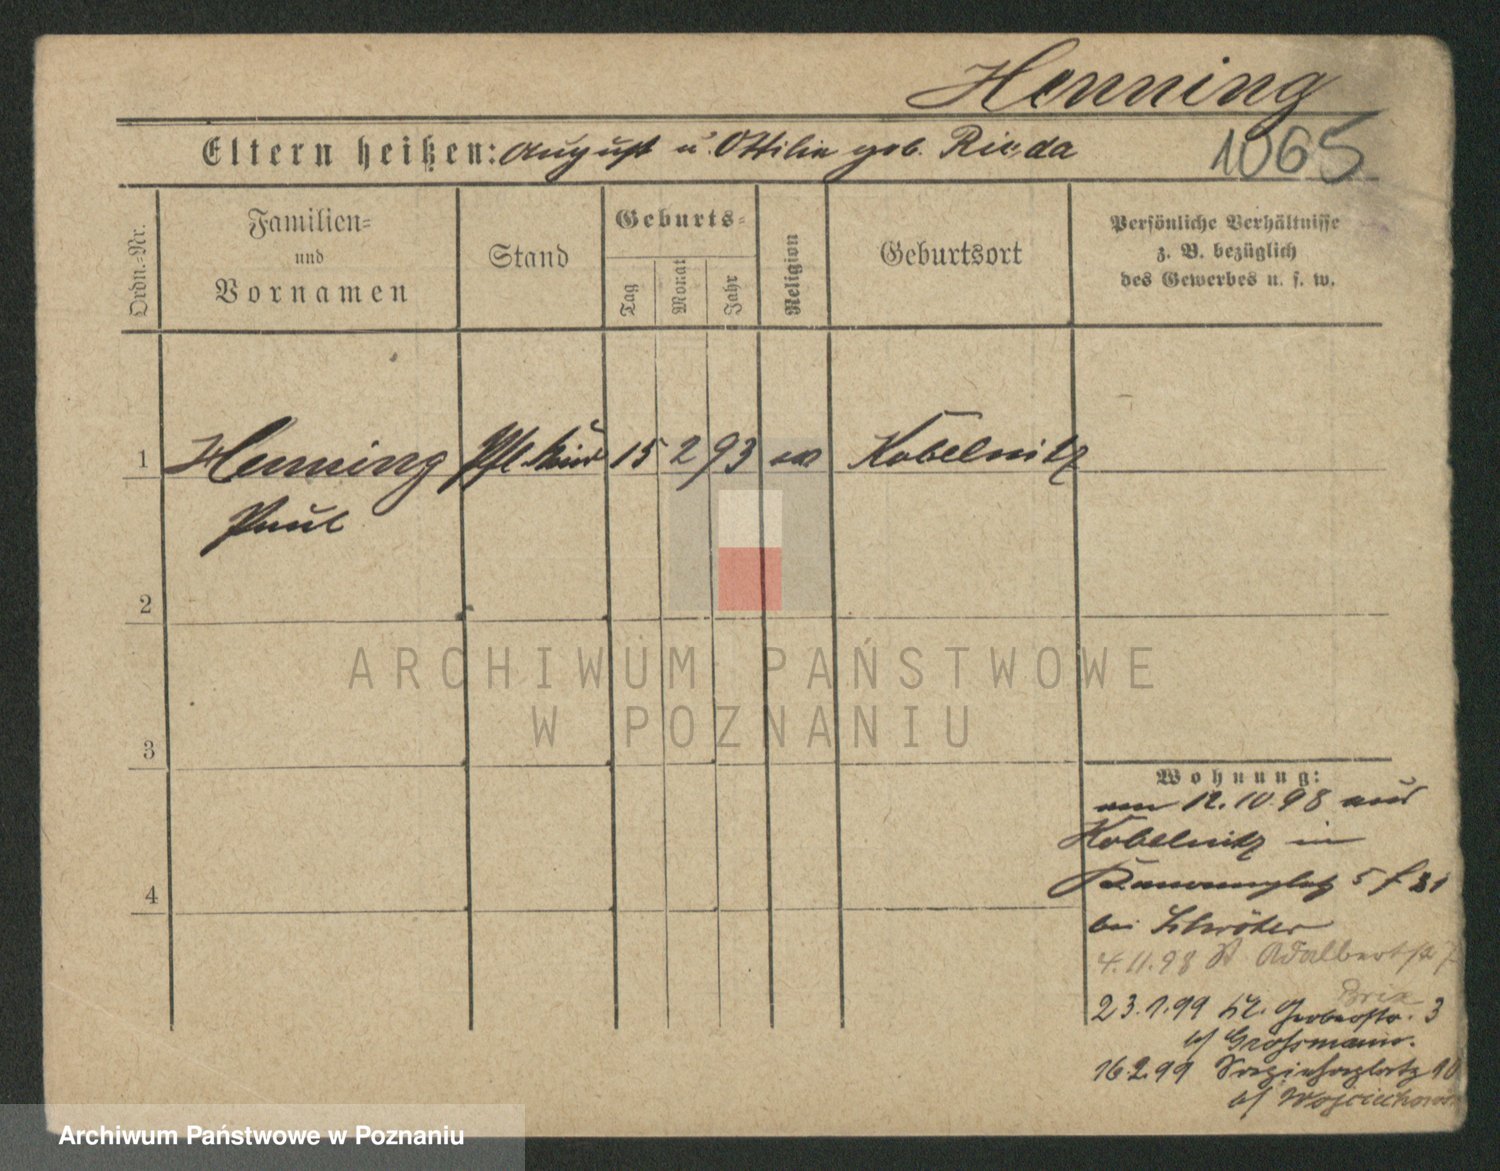 Henning
1065
Eltern heißen: August u. Ottilie geb. Rieda
Ordn.-Nr.
Familien-
und
Vornamen
Stand
Geburts-
Tag
Monat
Jahr
Religion
Geburtsort
Persönliche Verhältnisse
z. B. bezüglich
des Gewerbes u. s. w.
1 Henning Pfl. kind 15 2 93 ev Kobelnitz
Paul
2
ARCHIWUM PAŃSTWOWE
W POZNANIU
3
Wohnung:
am 12.10.98 aus
Kobelnitz in
5
4
bei Schröter
4.11.98 St Adalbertstr 7
Brix
23.1.99 Kl. Gerberstr. 3
b/ Grossmann.
16.2.99 Sapiehaplatz 10
b/ Wojciechows
Archiwum Państwowe w Poznaniu